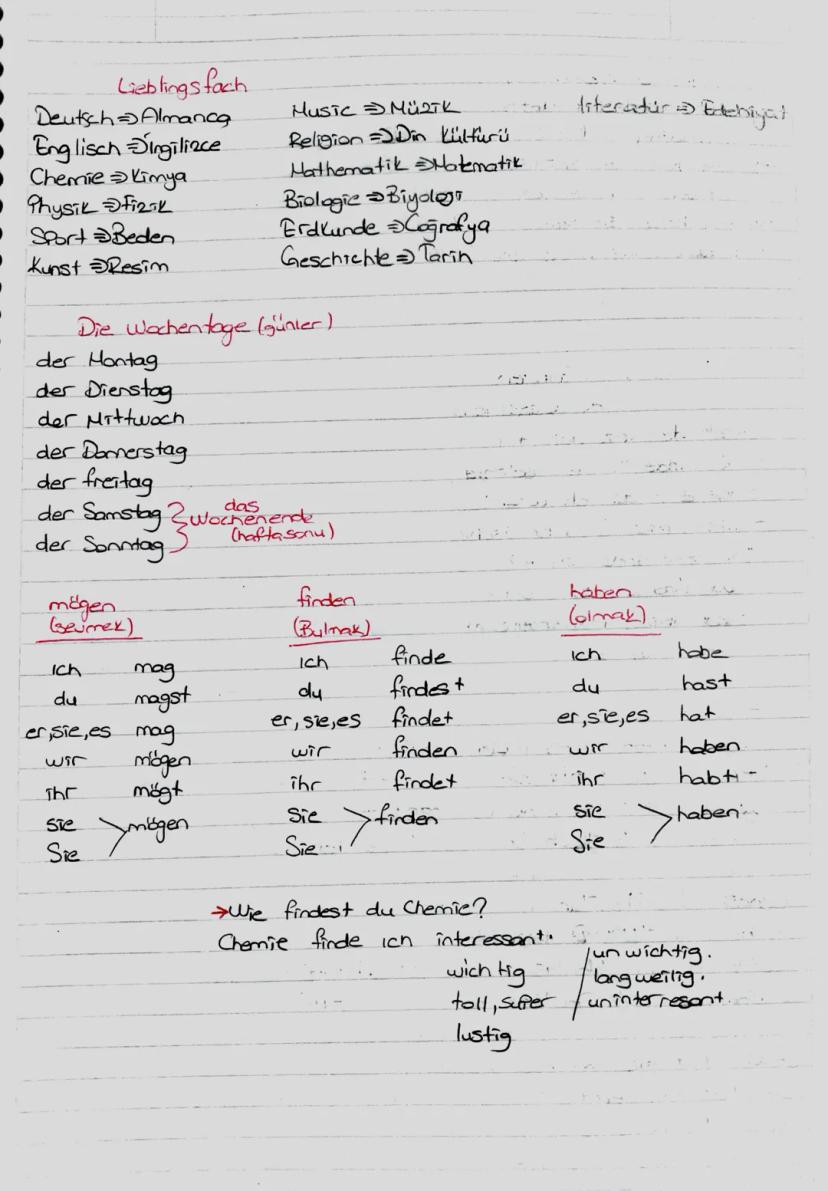 Lieblingsfach
Deutsch ⇒ Almanca
Englisch ⇒ İngilizce
Chemie ⇒ Kimya
Physik ⇒ Fizik
Sport ⇒ Beden
Kunst ⇒ Resim
Music ⇒ Müzik
Religion ⇒ Din Kültürü
Mathematik ⇒ Matematik
Biologie ⇒ Biyoloji
Erdkunde ⇒ Coğrafya
Geschichte ⇒ Tarih
literatür ⇒ Edebiyat
Die Wochentage (günler)
der Montag
der Dienstag
der Mittwoch
der Donnerstag
der freitag
der Samstag
der Sonntag
das
Wochenende
(haftasonu)
mögen
(sevmek)
ich mag
du magst
er, sie, es mag
wir mögen
ihr mögt
sie
Sie
mögen
finden
(Bulmak)
ich finde
du findest
er, sie, es findet
wir finden
ihr findet
Sie
Sie
finden
haben
(olmak)
ich habe
du hast
er, sie, es hat
wir haben
ihr habt
sie
Sie
haben
→ Wie findest du Chemie?
Chemie finde ich interessant.
wichtig
toll, super
lustig
/ unwichtig.
langweilig.
uninterresant.